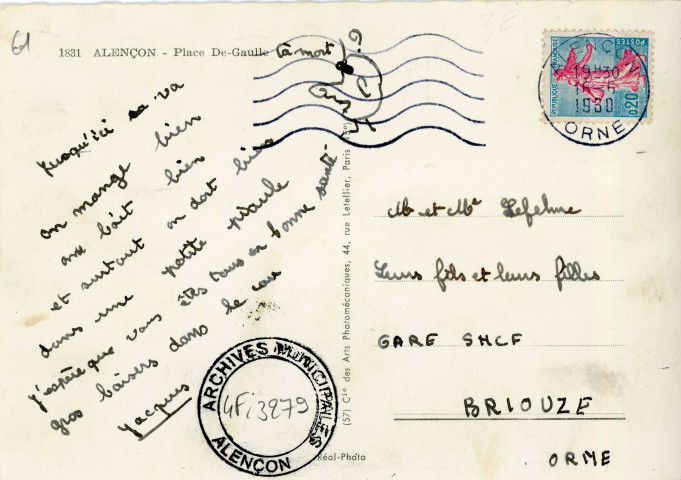 61
1831 ALENÇON - Place De-Gaulle
à mort
?
Jusqu'ici sa va
on mange bien
on boit bien
et surtout on dort bien
dans une petite piaule
J'espère que vous êtes tous en bonne santé
gros baisers dans le cou
Jacques
ARCHIVES MUNICIPALES
4Fi3279
ALENÇON
Réal-Photo
(57) Cie des Arts Photomécaniques, 44, rue Letellier, Paris
ALENCON
19H30
16-6
1960
ORNE
REPUBLIQUE FRANÇAISE
POSTES
0,20
Mr et Me Lefebvre
Leurs fils et leurs filles
GARE SNCF
BRIOUZE
ORNE